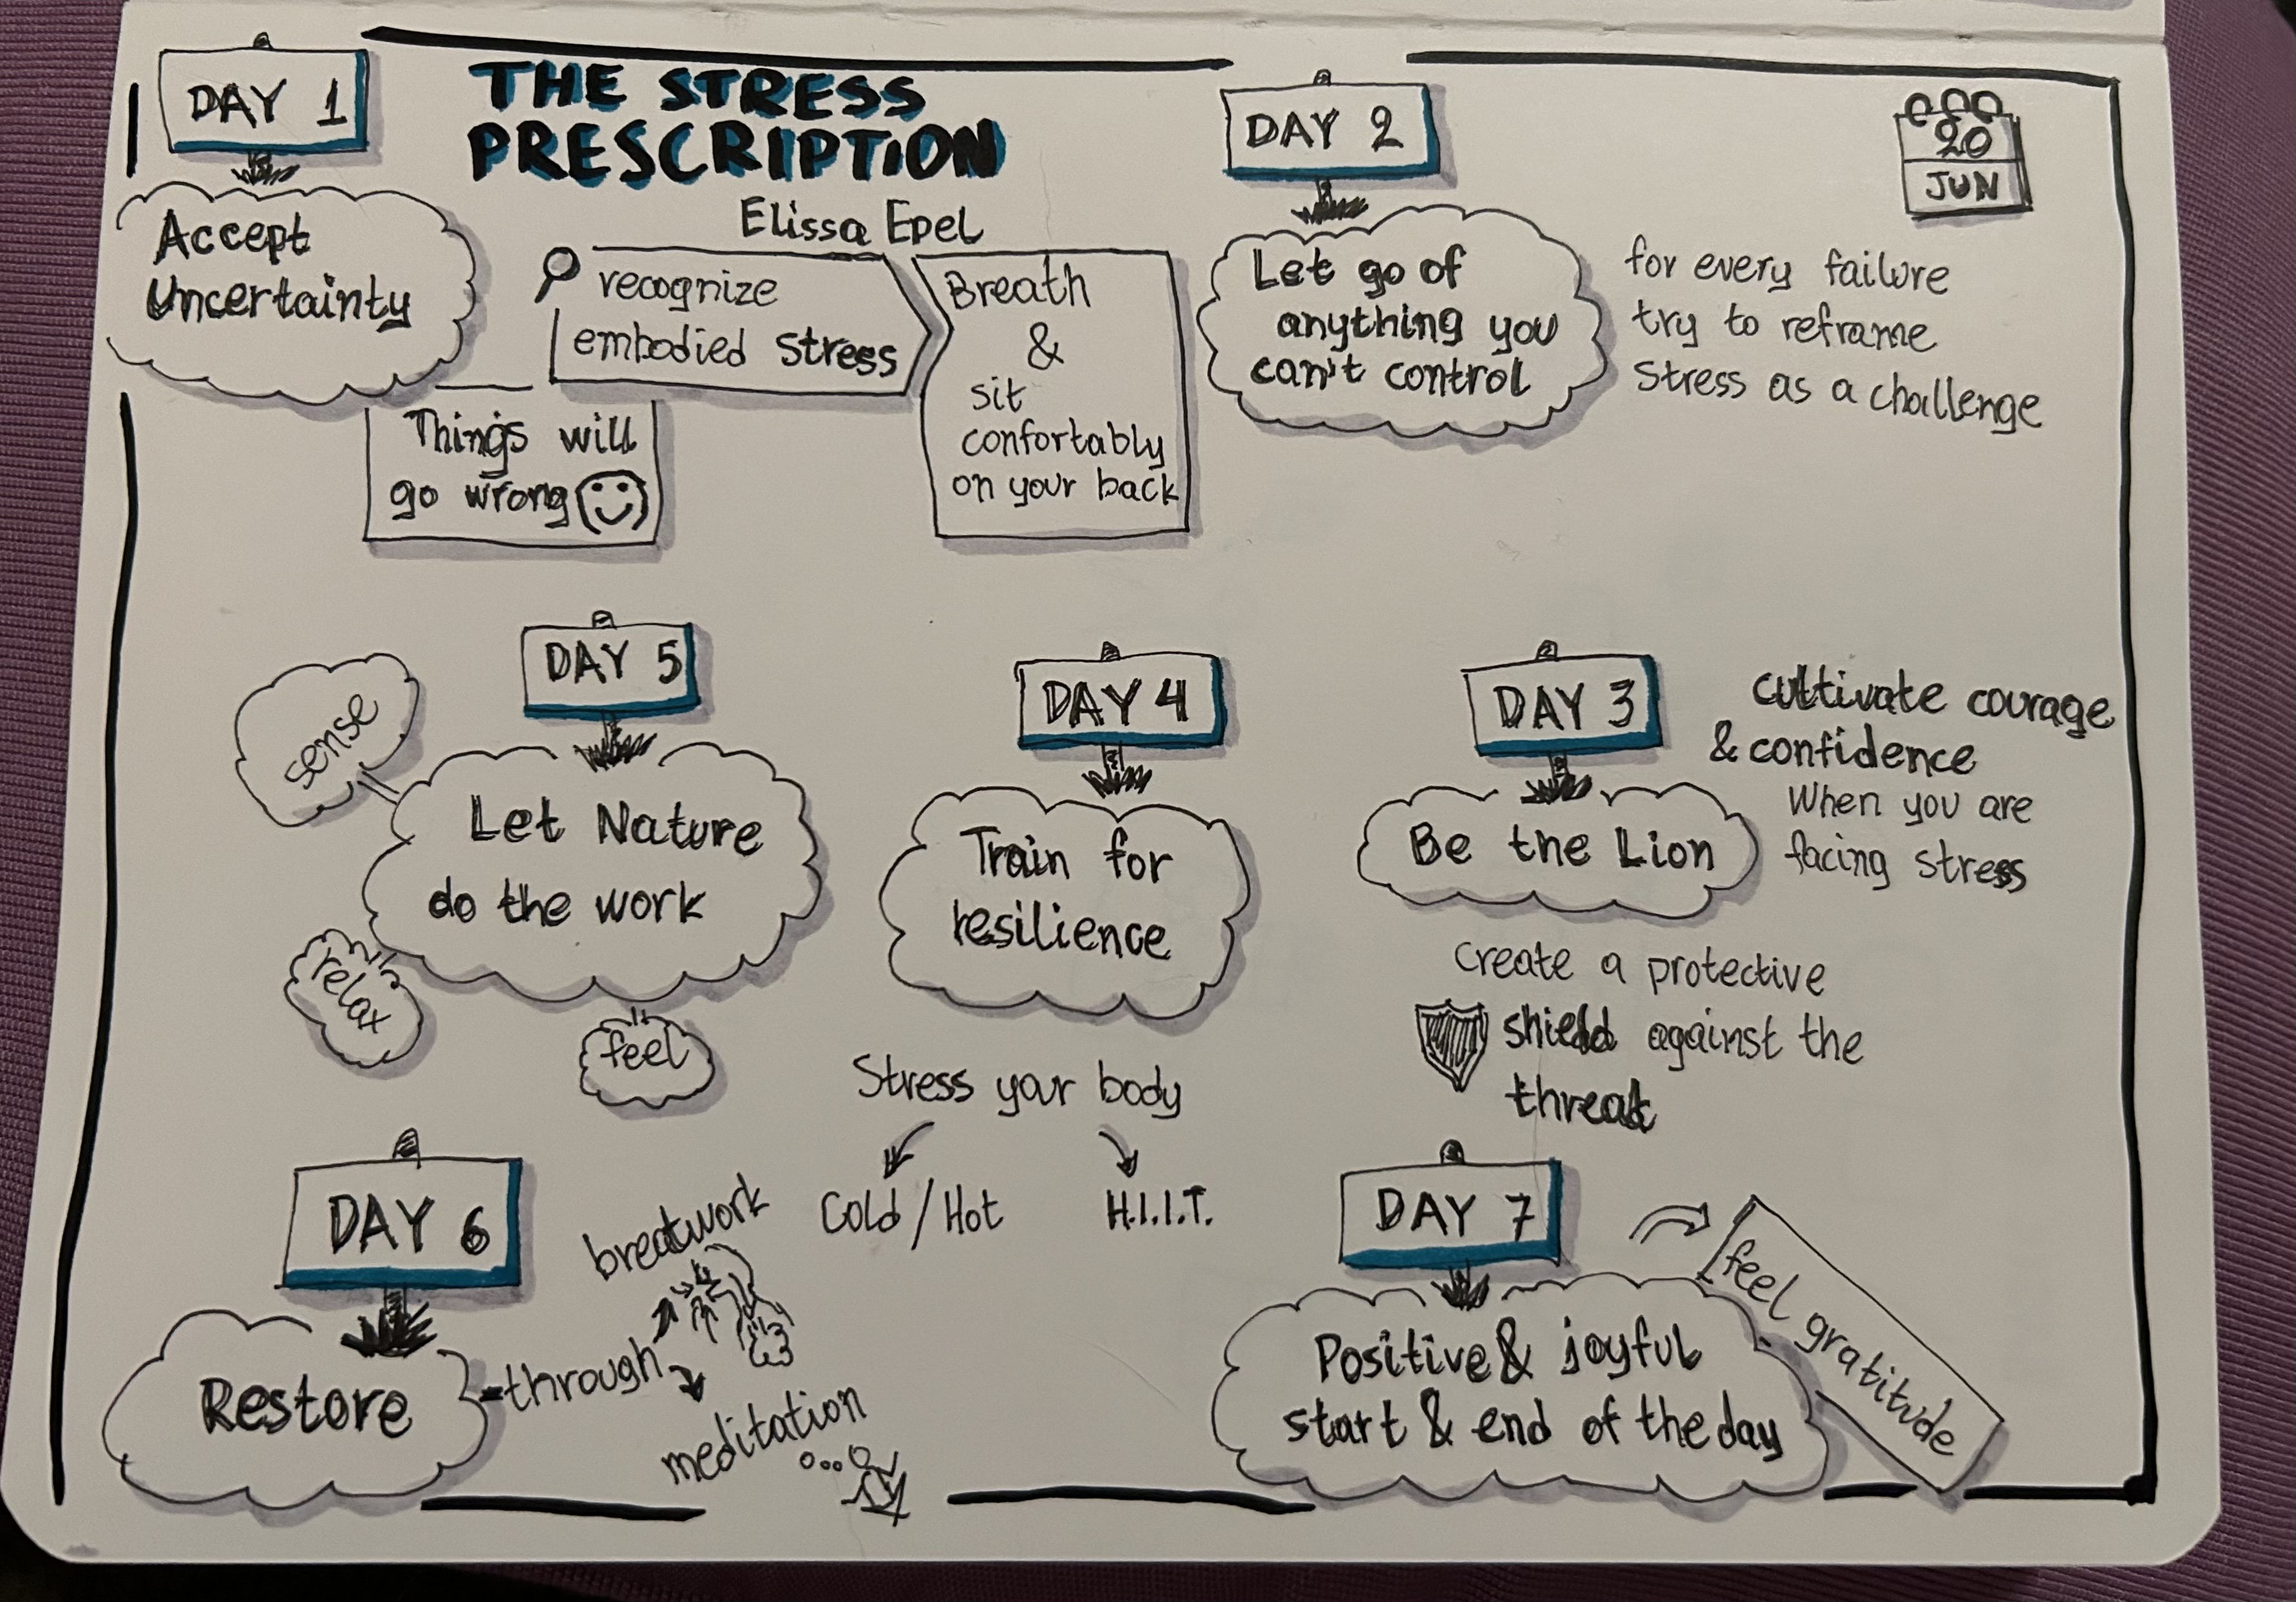 DAY 1
THE STRESS
PRESCRIPTION
Elissa Epel
Accept
Uncertainty
Things will
go wrong
recognize
embodied stress
Breath
&
sit
confortably
on your back
DAY 2
Let go of
anything you
can't control
20
JUN
for every failure
try to reframe
stress as a challenge
DAY 3
Be the Lion
cultivate courage
& confidence
When you are
facing stress
create a protective
shield against the
threat
DAY 4
Train for
resilience
Stress your body
Cold / Hot
H.I.I.T.
DAY 5
Let Nature
do the work
sense
relax
feel
DAY 6
Restore
through
breatwork
meditation
DAY 7
Positive & joyful
start & end of the day
feel gratitude